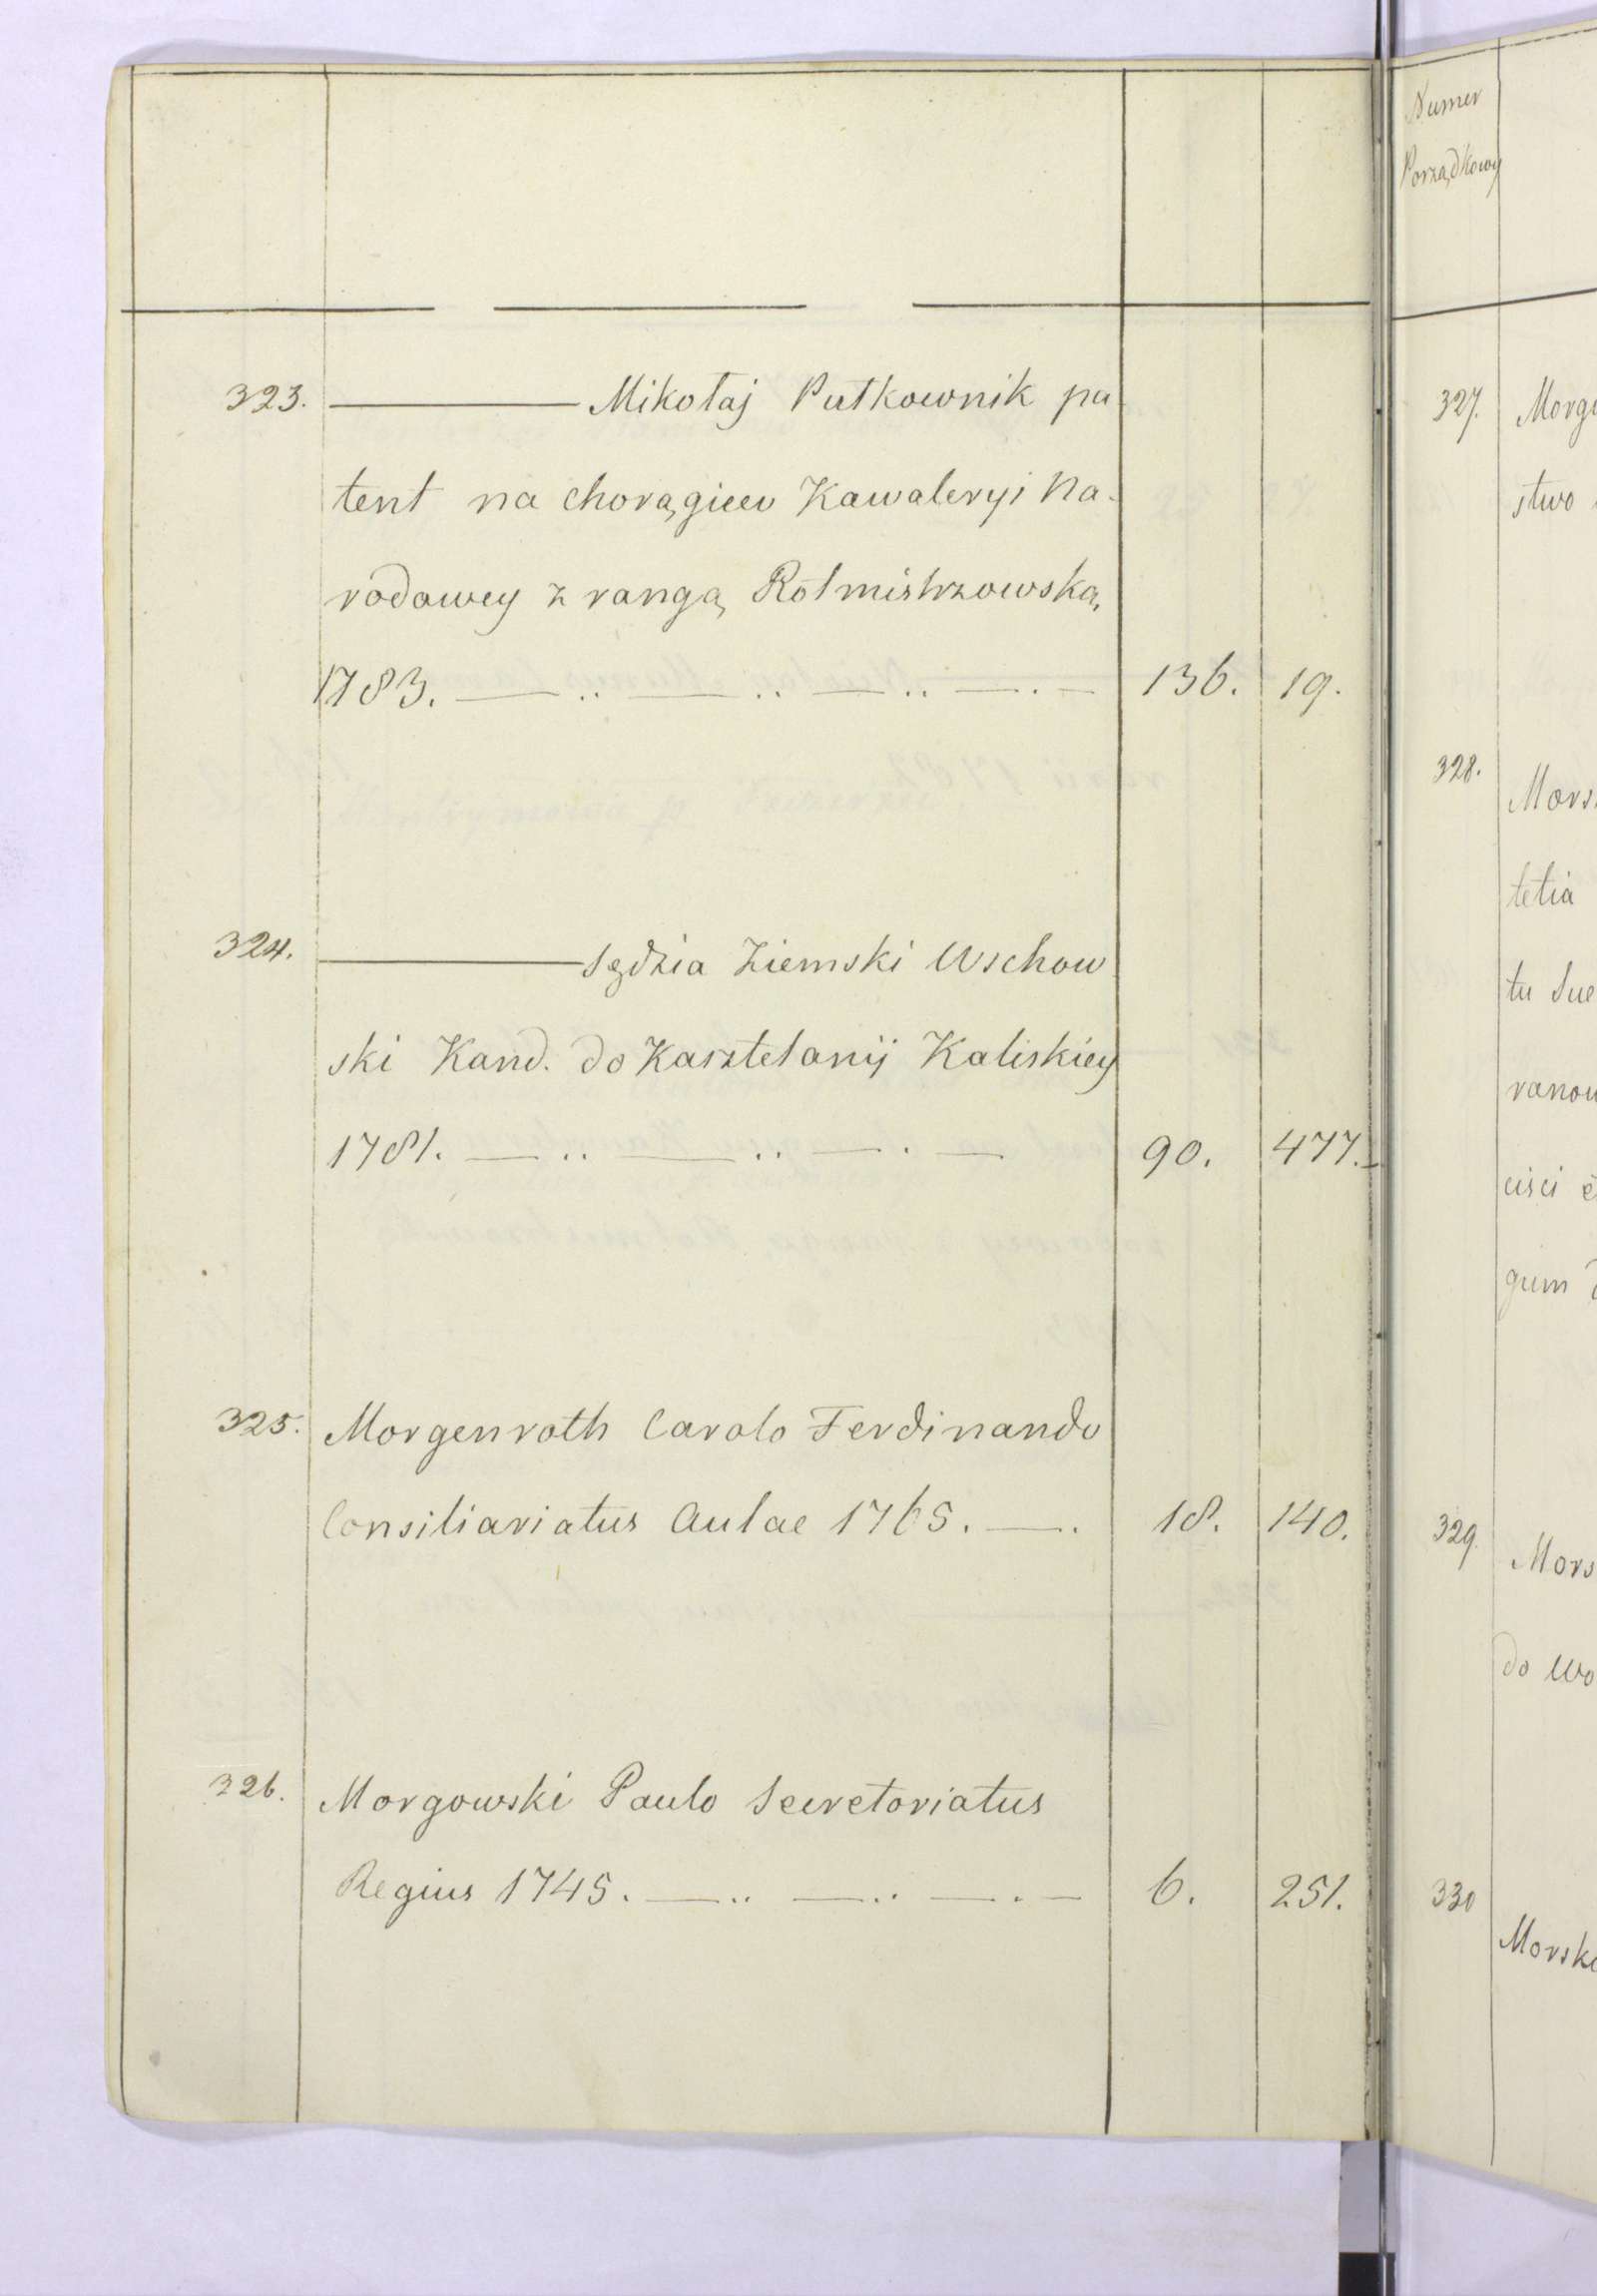 323. ——— Mikołaj Pułkownik pa-
tent na chorągiew Kawaleryi Na-
rodowey z rangą Rotmistrzowską
1783. — .. — .. — .. — . — 136. 19.
324. ——— Sędzia Ziemski Wschow
ski Kand. do Kasztelanij Kaliskiey
1781. — .. — .. — . — 90. 477.
325. Morgenroth Carolo Ferdinando
Consiliariatus Aulae 1765. — . 18. 140.
326. Morgowski Paulo Secretoriatus
Regius 1745. — .. — .. — . — 6. 251.
Numer
Porządkowy
327. Morg
stwo
328. Mors
tetia
tu Sue
ranou
cisci
gum
329. Mors
do Wo
330 Morsk